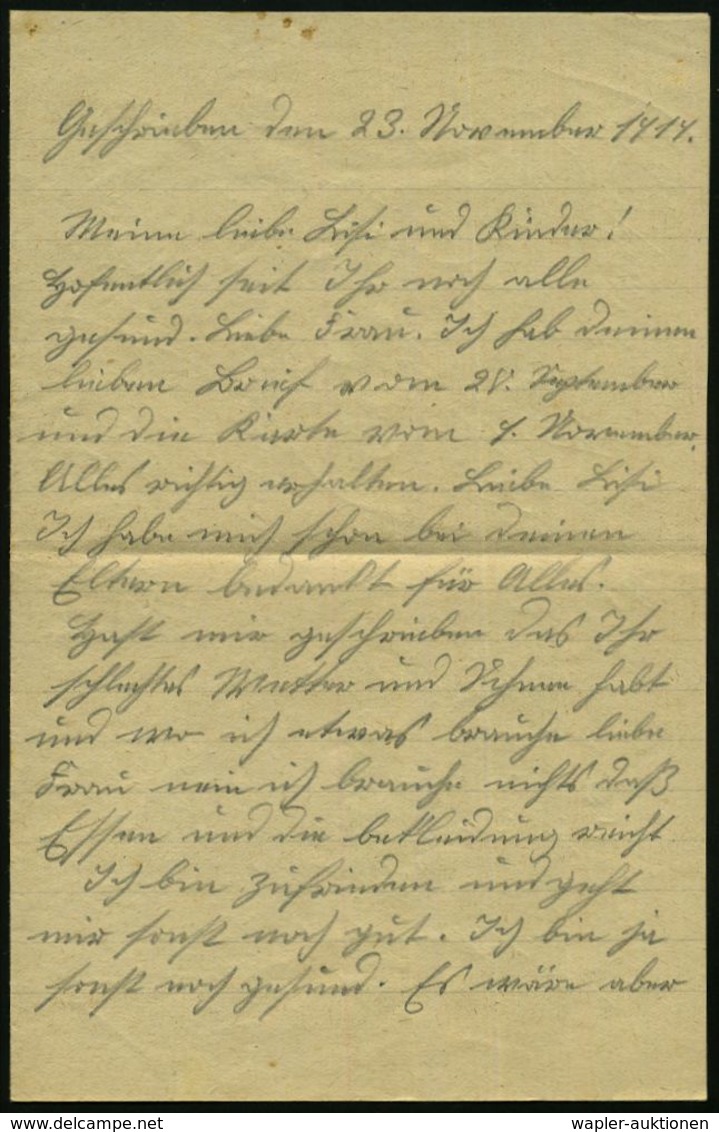 Geschrieben den 23. November 1914.
Meine liebe Lisi und Kinder!
Hofentlich seit Ihr noch alle
gesund. Liebe Frau. Ich hab deinen
lieben Brief vom 28. September
und die Karte vom 1. November
Alles richtig erhalten. Liebe Lisi
Ich habe mich schon bei deinen
Eltern bedankt für Alles.
Hast mir geschrieben das Ihr
schlechtes Wetter und Schnee habt
und wo ich etwas brauche liebe
Frau nein ich brauche nichts daß
Essen und die bekleidung reicht
Ich bin zufrieden und geht
mir sonst noch gut. Ich bin ja
sonst noch gesund. Es wäre aber
delcampe.net
wapler-auktionen